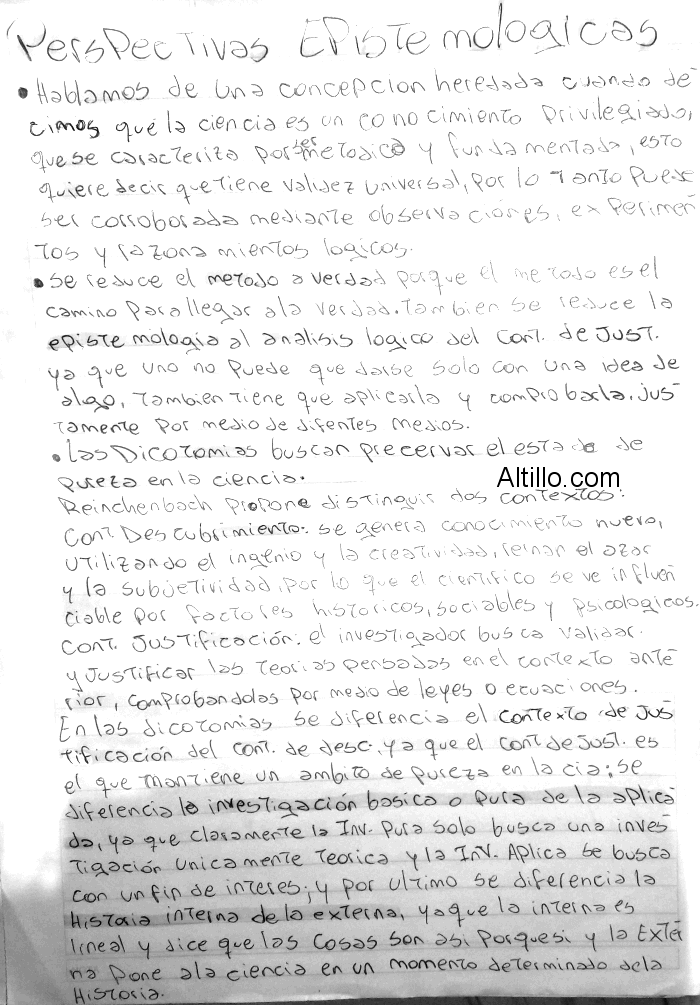 Perspectivas Epistemologicas
• Hablamos de una concepcion heredada cuando de
cimos que la ciencia es un conocimiento privilegiado,
que se caracteriza por ser metodico y fundamentada, esto
quiere decir que tiene validez universal, por lo tanto puede
ser corroborada mediante observaciones, experimen
tos y razonamientos logicos.
• Se reduce el metodo a verdad porque el metodo es el
camino para llegar a la verdad. Tambien se reduce la
epistemologia al analisis logico del cont. de Just.
ya que uno no puede quedarse solo con una idea de
algo, tambien tiene que aplicarla y comprobarla, jus
tamente por medio de difentes medios.
• Las Dicotomias buscan precervar el estado de
pureza en la ciencia.
Altillo.com
Reinchenbach propone distinguir dos contextos:
Cont Descubrimiento: se genera conocimiento nuevo,
utilizando el ingenio y la creatividad, reinan el azar
y la subjetividad, por lo que el cientifico se ve influen
ciable por factores historicos, sociables y psicologicos.
Cont. Justificación: el investigador busca validar
y justificar las teorias pensadas en el contexto ante
rior, comprobandolas por medio de leyes o ecuaciones.
En las dicotomias se diferencia el contexto de jus
tificación del cont. de desc., ya que el cont de Just. es
el que mantiene un ambito de pureza en la cia; se
diferencia la investigación basica o pura de la aplica
da, ya que claramente la Inv. Pura solo busca una inves
tigación unicamente teorica y la Inv. Aplica se busca
con un fin de interes; y por ultimo se diferencia la
Historia interna de la externa, ya que la interna es
lineal y dice que las cosas son asi porque si y la Exter
na pone a la ciencia en un momento determinado de la
Historia.